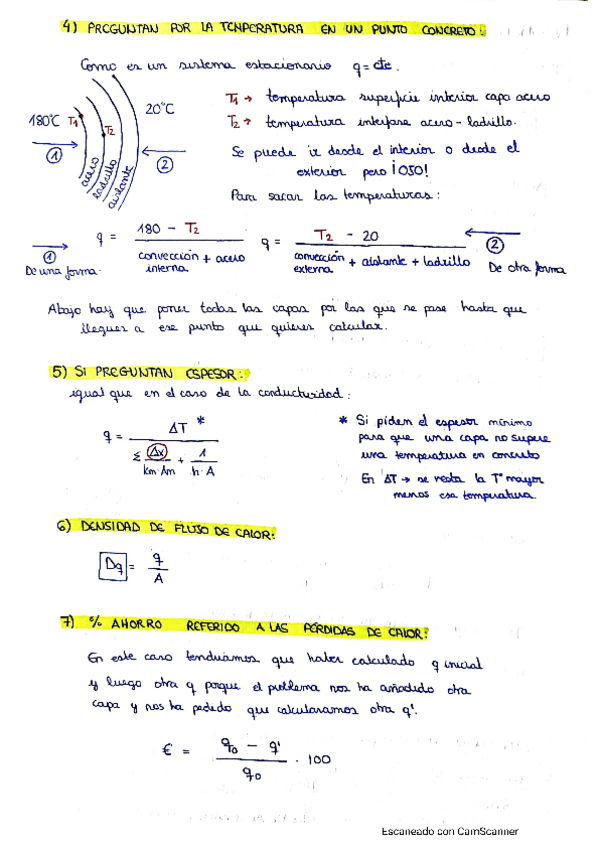 4) PREGUNTAN POR LA TEMPERATURA EN UN PUNTO CONCRETO:
Como es un sistema estacionario q = cte.
180°C T1 T2 20°C
① ②
acero
ladrillo
aislante
T1 → temperatura superficie interior capa acero
T2 → temperatura interfase acero - ladrillo.
Se puede ir desde el interior o desde el
exterior pero ¡OJO!
Para sacar las temperaturas:
① De una forma: q = (180 - T2) / (convección interna + acero)
q = (T2 - 20) / (convección externa + aislante + ladrillo) ② De otra forma
Abajo hay que poner todas las capas por las que se pase hasta que
llegues a ese punto que quieres calcular.
5) SI PREGUNTAN ESPESOR:
igual que en el caso de la conductividad:
q = ΔT * / (Σ Δx / (km·Am) + 1 / (h·A))
* Si piden el espesor mínimo
para que una capa no supere
una temperatura en concreto
En ΔT → se resta la Tª mayor
menos esa temperatura.
6) DENSIDAD DE FLUJO DE CALOR:
Dq = q / A
7) % AHORRO REFERIDO A LAS PÉRDIDAS DE CALOR:
En este caso tendríamos que haber calculado q inicial
y luego otra q porque el problema nos ha añadido otra
capa y nos ha pedido que calculáramos otra q'.
€ = (q0 - q') / q0 · 100
Escaneado con CamScanner